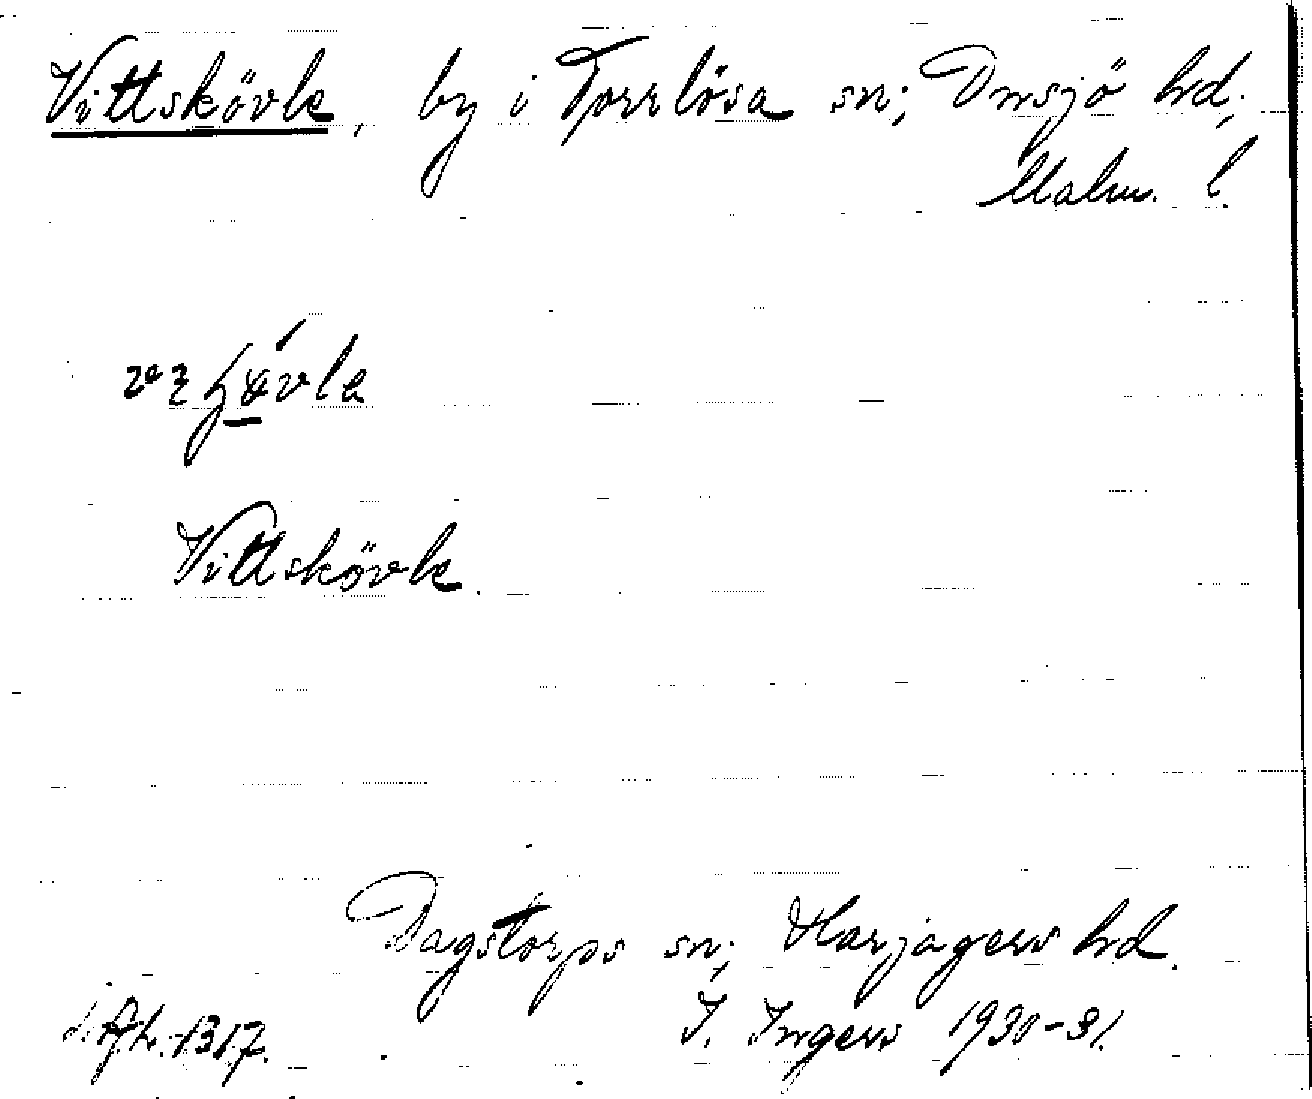 Vittskövle, by i Torrlösa sn; Onsjö hd;
Malm. l.
Vittskövle.
Dagstorps sn; Harjagers hd.
1317. I. Ingers 1930-31.